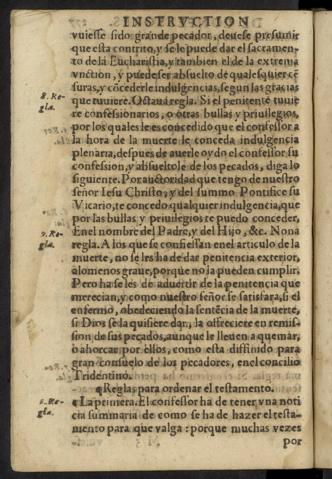 INSTRVCTION
vuiesse sido grande pecador, deuese presumir
que esta contrito, y se le puede dar el sacramen-
to de la Eucharistia, y tambien el de la extrema
vnction, y puede ser absuelto de qualesquier cẽ
suras, y cõcederle indulgencias, segun las gracias
8. Re-
gla.
que tuuiere. Octaua regla. Si el penitente tuuie
re confessionarios, o otras bullas y priuilegios,
por los quales le es concedido que el confessor a
la hora de la muerte le conceda indulgencia
plenaria, despues de auerle oydo el confessor su
confession, y absueltole de los pecados, diga lo
siguiente. Por auctoridad que tengo de nuestro
señor Iesu Christo, y del summo Pontifice su
Vicario, te concedo qualquier indulgencia, que
por las bullas y priuilegios te puedo conceder,
En el nombre del Padre, y del Hijo, &c. Nona
9. Re-
gla.
regla. A los que se confiessan en el articulo de la
muerte, no se les ha de dar penitencia exterior,
alomenos graue, porque no la pueden cumplir.
Pero ha se les de aduertir de la penitencia que
merecian, y como nuestro señor se satisfara, si el
enfermo, obedeciendo la sentẽcia de la muerte,
si Dios se la quisiere dar, la ofreciere en remis-
sion de sus pecados, aunque le lleuen a quemar,
o ahorcar por ellos, como esta diffinido para
gran consuelo de los pecadores, en el concilio
Tridentino.
¶ Reglas para ordenar el testamento.
1. Re-
gla.
¶ La primera. El confessor ha de tener vna noti
cia summaria de como se ha de hazer el testa-
mento para que valga: porque muchas vezes
por